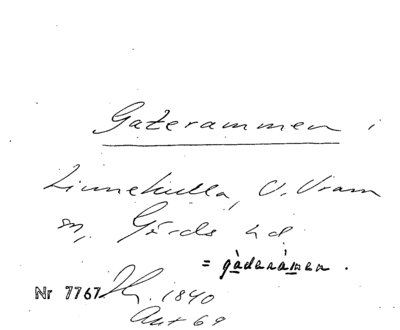 Gaterammen i
Linnekulla, V. Vram
sn, Gärds hd
= gàdaràmen.
Nr 7767 Jh. 1840
Ant 69